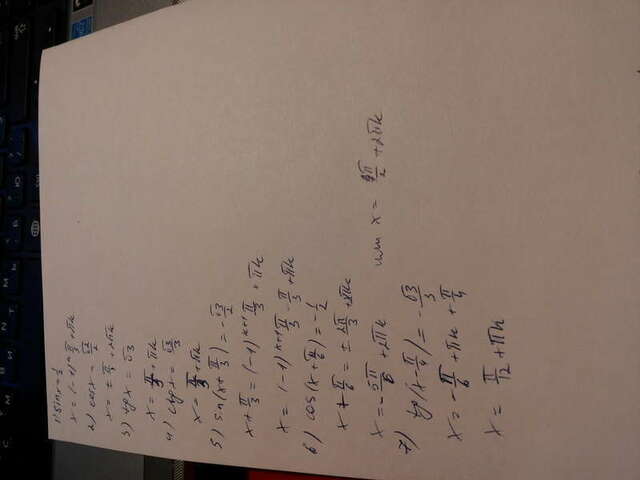 1) sin x = 1/2
x = (-1)ⁿ π/6 + πk
2) cos x = √2/2
x = ± π/4 + 2πk
3) tg x = √3
x = π/3 + πk
4) ctg x = √3/3
x = π/3 + πk
5) sin(x + π/3) = -√3/2
x + π/3 = (-1)ᵏ⁺¹ π/3 + πk
x = (-1)ᵏ⁺¹ π/3 - π/3 + πk
6) cos(x + π/6) = -1/2
x + π/6 = ± 2π/3 + 2πk
x = -5π/6 + 2πk или x = π/2 + 2πk
7) tg(x - π/4) = -√3/3
x = -π/6 + πk + π/4
x = π/12 + πk